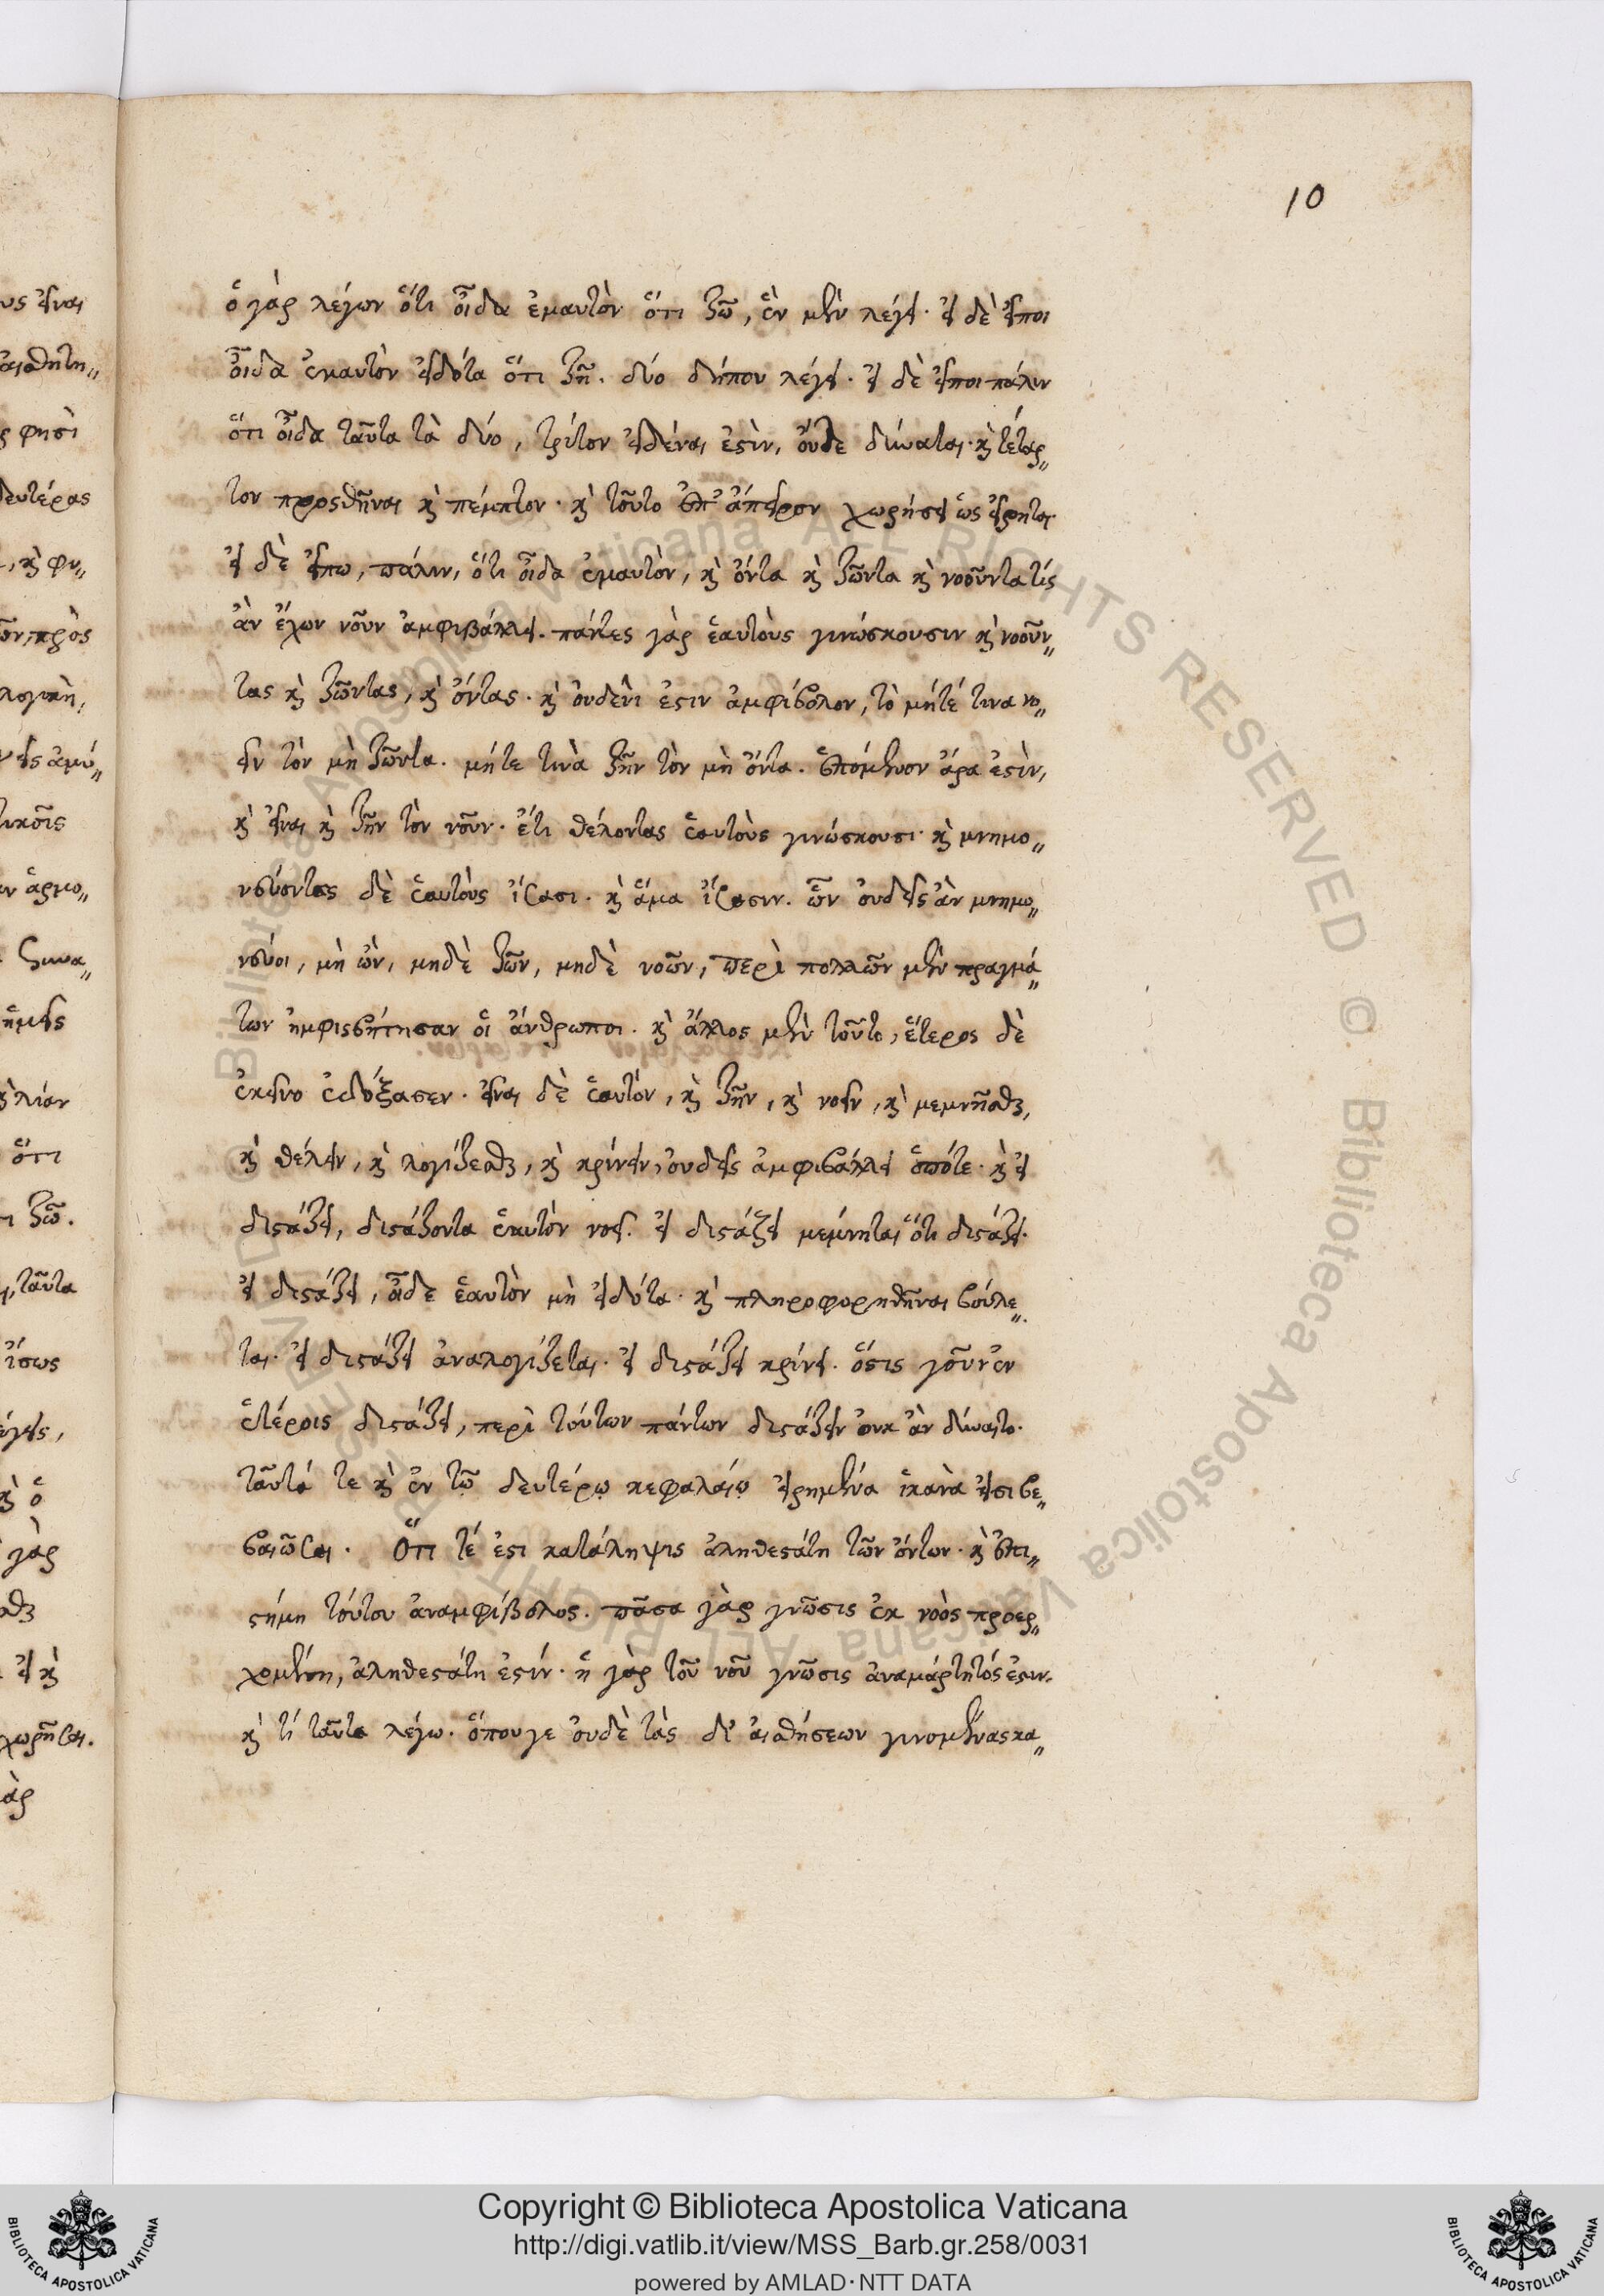 10
ὁ γὰρ λέγων ὅτι οἶδα ἐμαυτὸν ὅτι ζῶ, ἓν μὲν λέγει· εἰ δὲ εἴποι
οἶδα ἐμαυτὸν εἰδότα ὅτι ζῆ. δύο δήπου λέγει· εἰ δὲ εἴποι πάλιν
ὅτι οἶδα ταῦτα τὰ δύο, τρίτον εἰδέναι ἐστὶν, οὗδε δύναται· καὶ τέταρ„
τον προςθῆναι καὶ πέμπτον· καὶ τοῦτο ἐπ' ἄπειρον χωρήσει ὡς εἴρηται·
εἰ δὲ εἴπω, πάλιν, ὅτι οἶδα ἐμαυτὸν, καὶ ὄντα καὶ ζῶντα καὶ νοοῦντα τίς
ἂν ἔχων νοῦν ἀμφιβάλλει. πάντες γὰρ ἑαυτοὺς γινώσκουσιν καὶ νοοῦν„
τας καὶ ζῶντας, καὶ ὄντας· καὶ οὐδενὶ ἐστιν ἀμφίβολον, τὸ μήτέ τινα νο„
εῖν τὸν μὴ ζῶντα. μήτε τινὰ ζῆν τὸν μὴ ὄντα. ἑπόμενον ἄρα ἐστὶν,
καὶ εἶναι καὶ ζῆν τὸν νοῦν· ἔτι θέλοντας ἑαυτοὺς γινώσκουσι· καὶ μνημο„
νεύοντας δὲ ἑαυτοὺς ἴσασι· καὶ ἅμα ἴσασιν. ὧν οὐδεὶς ἂν μνημο„
νεύοι, μὴ ὢν, μηδὲ ζῶν, μηδὲ νοῶν, περὶ πολλῶν μὲν πραγμά„
των ἠμφισβήτησαν οἱ ἄνθρωποι· καὶ ἄλλος μὲν τοῦτο, ἕτερος δὲ
ἐκεῖνο ἐδόξασεν· εἶναι δὲ ἑαυτόν, καὶ ζῆν, καὶ νοεῖν, καὶ μεμνῆσθαι,
καὶ θέλειν, καὶ λογίζεσθαι, καὶ κρίνειν, οὐδεὶς ἀμφιβάλλει ὁπότε· καὶ εἰ
διστάζει, διστάζοντα ἑαυτὸν νοεῖ. εἰ διστάζει μέμνηται ὅτι διστάζει·
εἰ διστάζει, οἶδε ἑαυτὸν μὴ εἰδότα· καὶ πληροφορηθῆναι βούλε„
ται· εἰ διστάζει ἀναλογίζεται· εἰ διστάζει κρίνει· ὅστις γοῦν ἐν
ἑτέροις διστάζει, περὶ τούτων πάντων διστάζειν οὐκ ἂν δύναιτο·
ταῦτά τε καὶ ἐν τῶ δευτέρῳ κεφαλαίῳ εἰρημένα ἱκανὰ εἰσι βε„
βαιῶσαι· Ὅτι τέ ἐστι κατάληψις ἀληθεστάτη τῶν ὄντων· καὶ ἐπι„
στήμη τούτου ἀναμφίβολος. πᾶσα γὰρ γνῶσις ἐκ νοὸς προερ„
χομένη, ἀληθεστάτη ἐστίν· ἡ γὰρ τοῦ νοῦ γνῶσις ἀναμάρτητός ἐστιν·
καὶ τί ταῦτα λέγω· ὅπου γε οὐδὲ τὰς δι' αἰσθήσεων γινομένας κα„
Copyright © Biblioteca Apostolica Vaticana
http://digi.vatlib.it/view/MSS_Barb.gr.258/0031
powered by AMLAD·NTT DATA